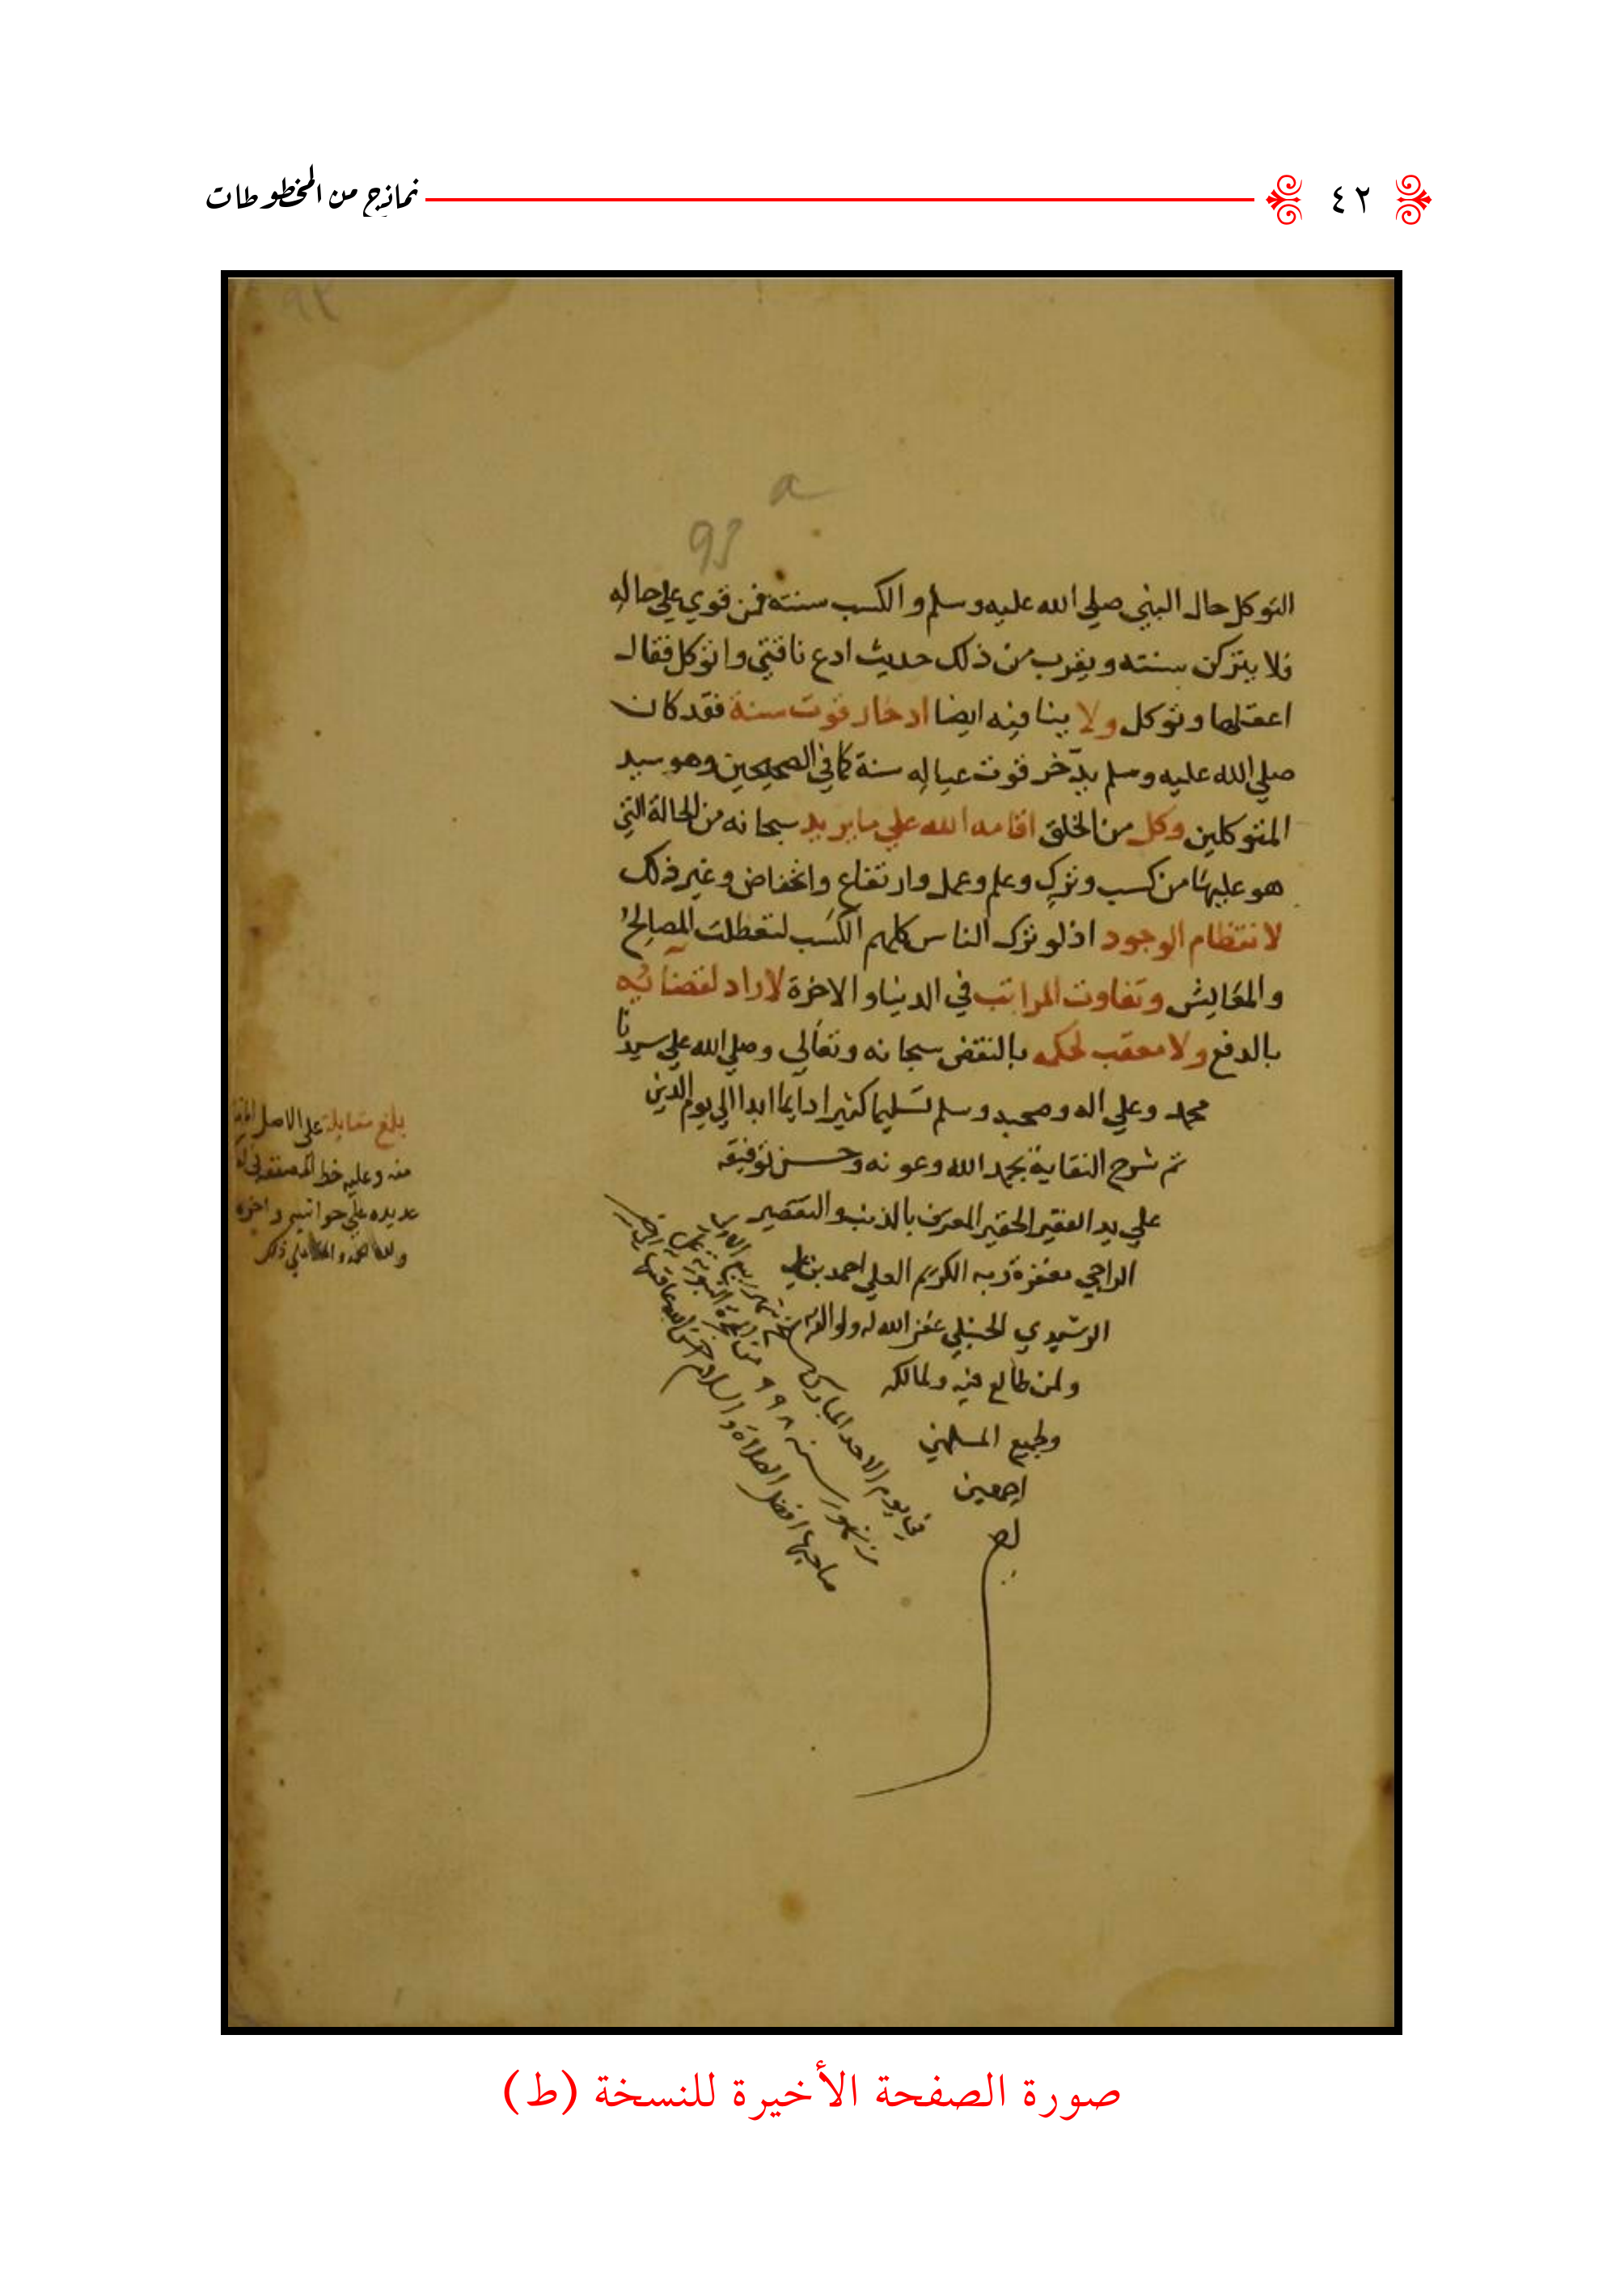 ٤٢
نماذج من المخطوطات
٩٢
a
93
التوكل حال النبي صلي الله عليه وسلم والكسب سنته فمن قوي علي حاله
فلا يتركن سنته ويقرب من ذلك حديث ادع ناقتي واتوكل فقال
اعقلها وتوكل ولا ينافيه ايضا ادخار قوت سنة فقد كان
صلي الله عليه وسلم يدّخر قوت عياله سنة كما في الصحيحين وهو سيد
المتوكلين وكل من الخلق اقامه الله علي ما يريد سبحانه من الحالة التي
هو عليها من كسب وترك وعلم وعمل وارتفاع وانخفاض وغير ذلك
لانتظام الوجود اذ لو ترك الناس كلهم الكسب لتعطلت المصالح
والمعايش وتفاوت المراتب في الدنيا والاخرة لا راد لقضائه
بالدفع ولا معقب لحكمه بالنقض سبحانه وتعالي وصلي الله علي سيدنا
محمد وعلي اله وصحبه وسلم تسليما كثيرا دايما ابدا الي يوم الدين
تم شرح النقاية بحمد الله وعونه وحسن توفيقه
علي يد الفقير الحقير المعترف بالذنب والتقصير
الراجي مغفرة ربه الكريم العلي احمد بن علي
الرشيدي الحنبلي غفر الله له ولوالديه
ولمن طالع فيه ولمالكه
ولجميع المسلمين
اجمعين
في يوم الاحد المبارك سلخ شهر ربيع
من شهور سنة ٩٩٨ من الهجرة النبوية علي
صاحبها افضل الصلاة والسلام احسن الله عاقبتها
بلغ مقابلة علي الاصل
منه وعليه خط المصنف في
عديده علي حواشيه واخره
ولله الحمد علي ذلك
صورة الصفحة الأخيرة للنسخة (ط)